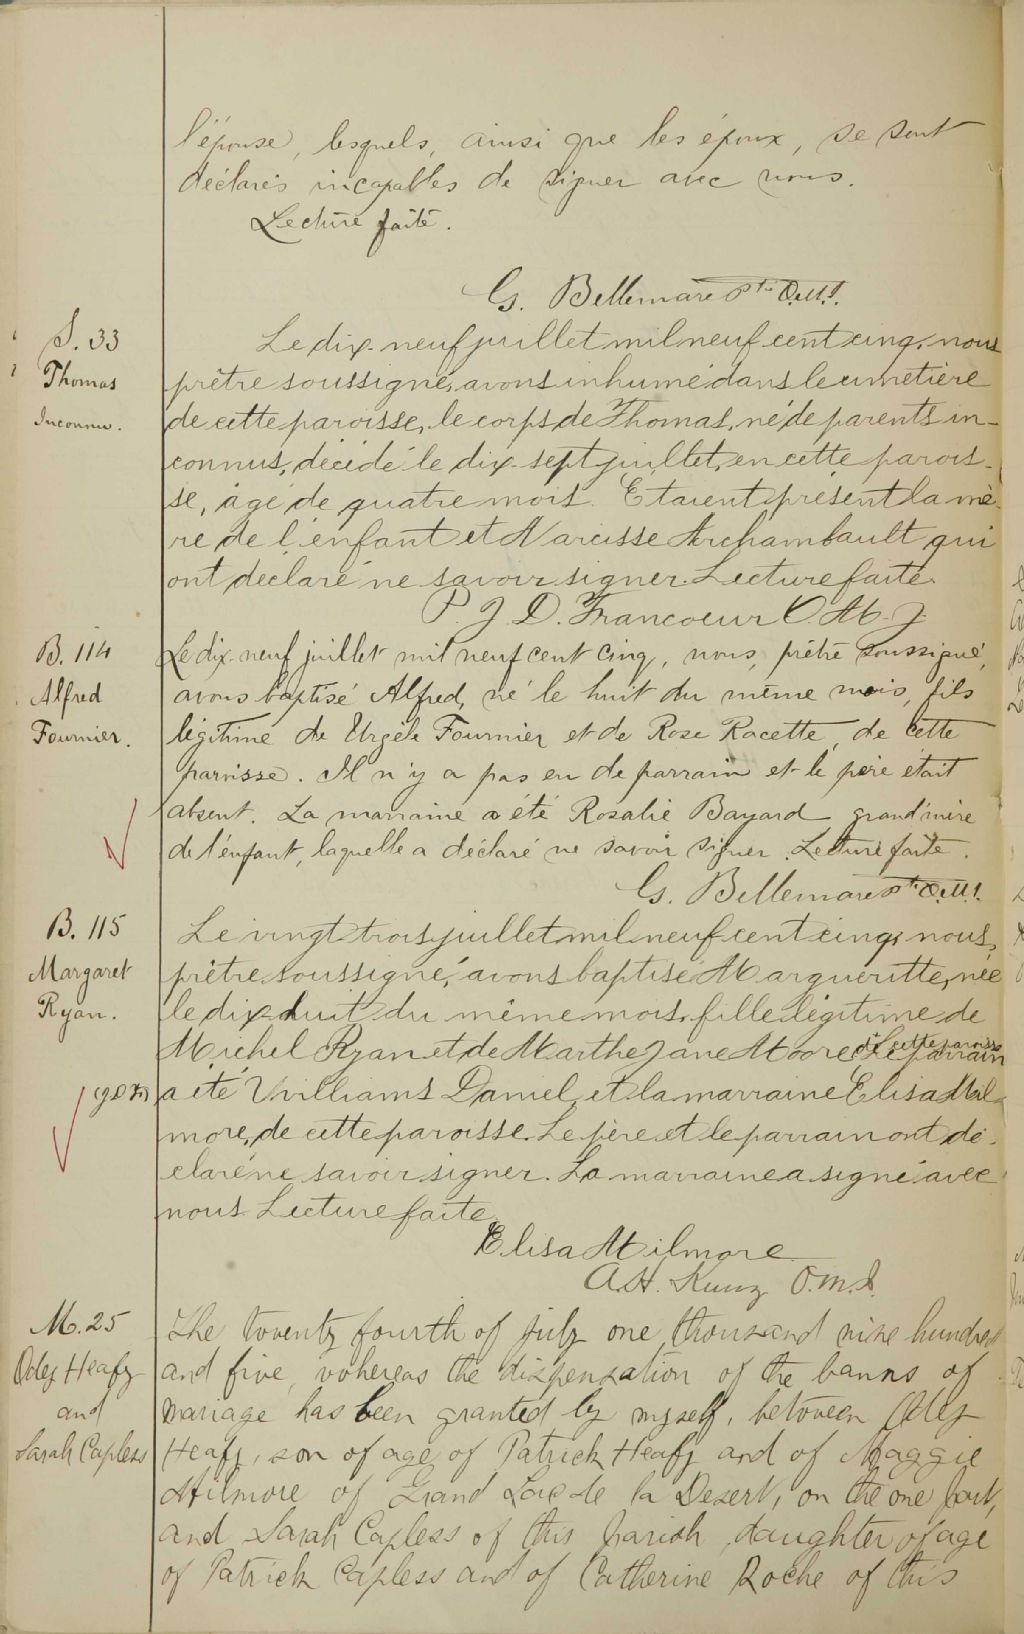 l'épouse, lesquels, ainsi que les époux, se sont
déclarés incapables de signer avec nous.
Lecture faite.
G. Bellemare Ptre O.M.I.
S. 33
Thomas
Inconnu.
Le dix-neuf juillet mil neuf cent cinq, nous
prêtre soussigné, avons inhumé dans le cimetière
de cette paroisse, le corps de Thomas, né de parents in-
connus, décédé le dix-sept juillet, en cette parois-
se, âgé de quatre mois. Etaient présent la mè-
re de l'enfant et Narcisse Archambault qui
ont déclaré ne savoir signer. Lecture faite.
P. J. D. Francoeur O. M. J
B. 114
Alfred
Fournier.
Le dix-neuf juillet mil neuf cent cinq, nous, prêtre soussigné,
avons baptisé Alfred, né le huit du même mois, fils
légitime de Urgèle Fournier et de Rose Racette, de cette
paroisse. Il n'y a pas eu de parrain et le père était
absent. La marraine a été Rosalie Bayard grand'mère
de l'enfant, laquelle a déclaré ne savoir signer. Lecture faite.
G. Bellemare Ptre O.M.I.
B. 115
Margaret
Ryan.
Le vingt trois juillet mil neuf cent cinq, nous,
prêtre soussigné, avons baptisé Margueritte, née
le dix huit du même mois, fille légitime de
Michel Ryan et de Marthe Jane Moore, de cette paroisse Le parrain
a été Villiams Daniel, et la marraine Elisa Mil-
more, de cette paroisse. Le père et le parrain ont dé-
claré ne savoir signer. La marraine a signé avec
nous. Lecture faite
Elisa Milmore
A.H. Kunz O.M.I.
M. 25
Odey Heafy
and
Sarah Capless
The twenty fourth of july one thousand nine hundred
and five, whereas the dispensation of the banns of
mariage has been granted by myself, between Odey
Heafy, son of age of Patrick Heafy and of Maggie
Milmore of Grand Lac de la Desert, on the one part,
and Sarah Capless of this parish, daughter of age
of Patrick Capless and of Catherine Roche of this